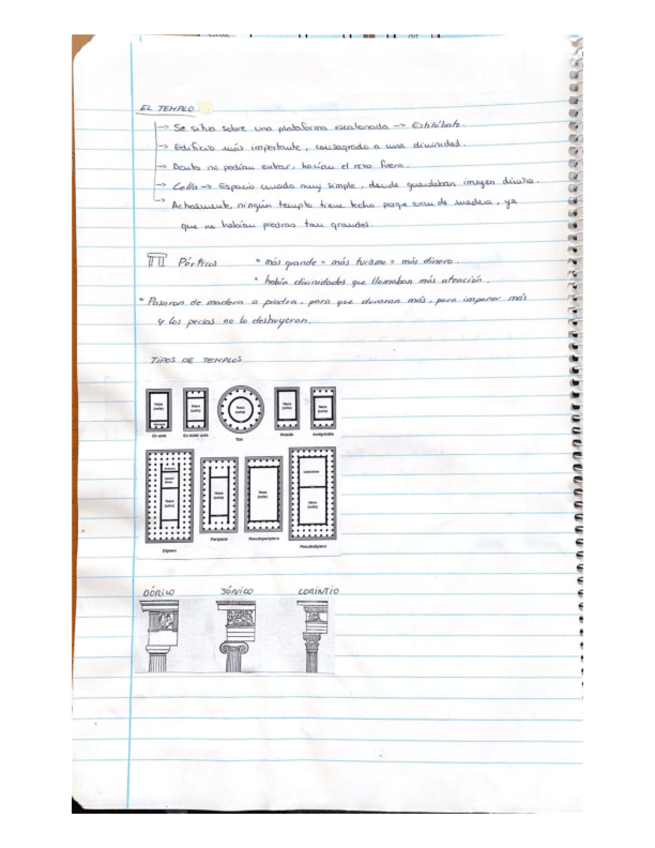 EL TEMPLO
→ Se situa sobre una plataforma escalonada → Estilóbato.
→ Edificio más importante, consagrado a una divinidad.
→ Dentro no podían entrar, hacían el rezo fuera.
→ Cella → Espacio cuadro muy simple, donde guardaban imagen divina.
→ Actualmente, ningún templo tiene techo porque eran de madera, ya
que no habían piedras tan grandes.
Pórticos * más grande = más turismo = más dinero.
* había divinidades que llamaban más atención.
* Pasaron de madera a piedra, para que duraran más, para imponer más
y los persas no lo destruyeran.
TIPOS DE TEMPLOS
Naos (cella) Naos (cella) Naos (cella) Naos (cella) Naos (cella)
In antis En doble antis Tolo Próstilo Anfipróstilo
Naos (cella) Naos (cella) Naos (cella) Naos (cella)
Díptero Períptero Pseudoperíptero Pseudodíptero
DÓRICO JÓNICO CORINTIO